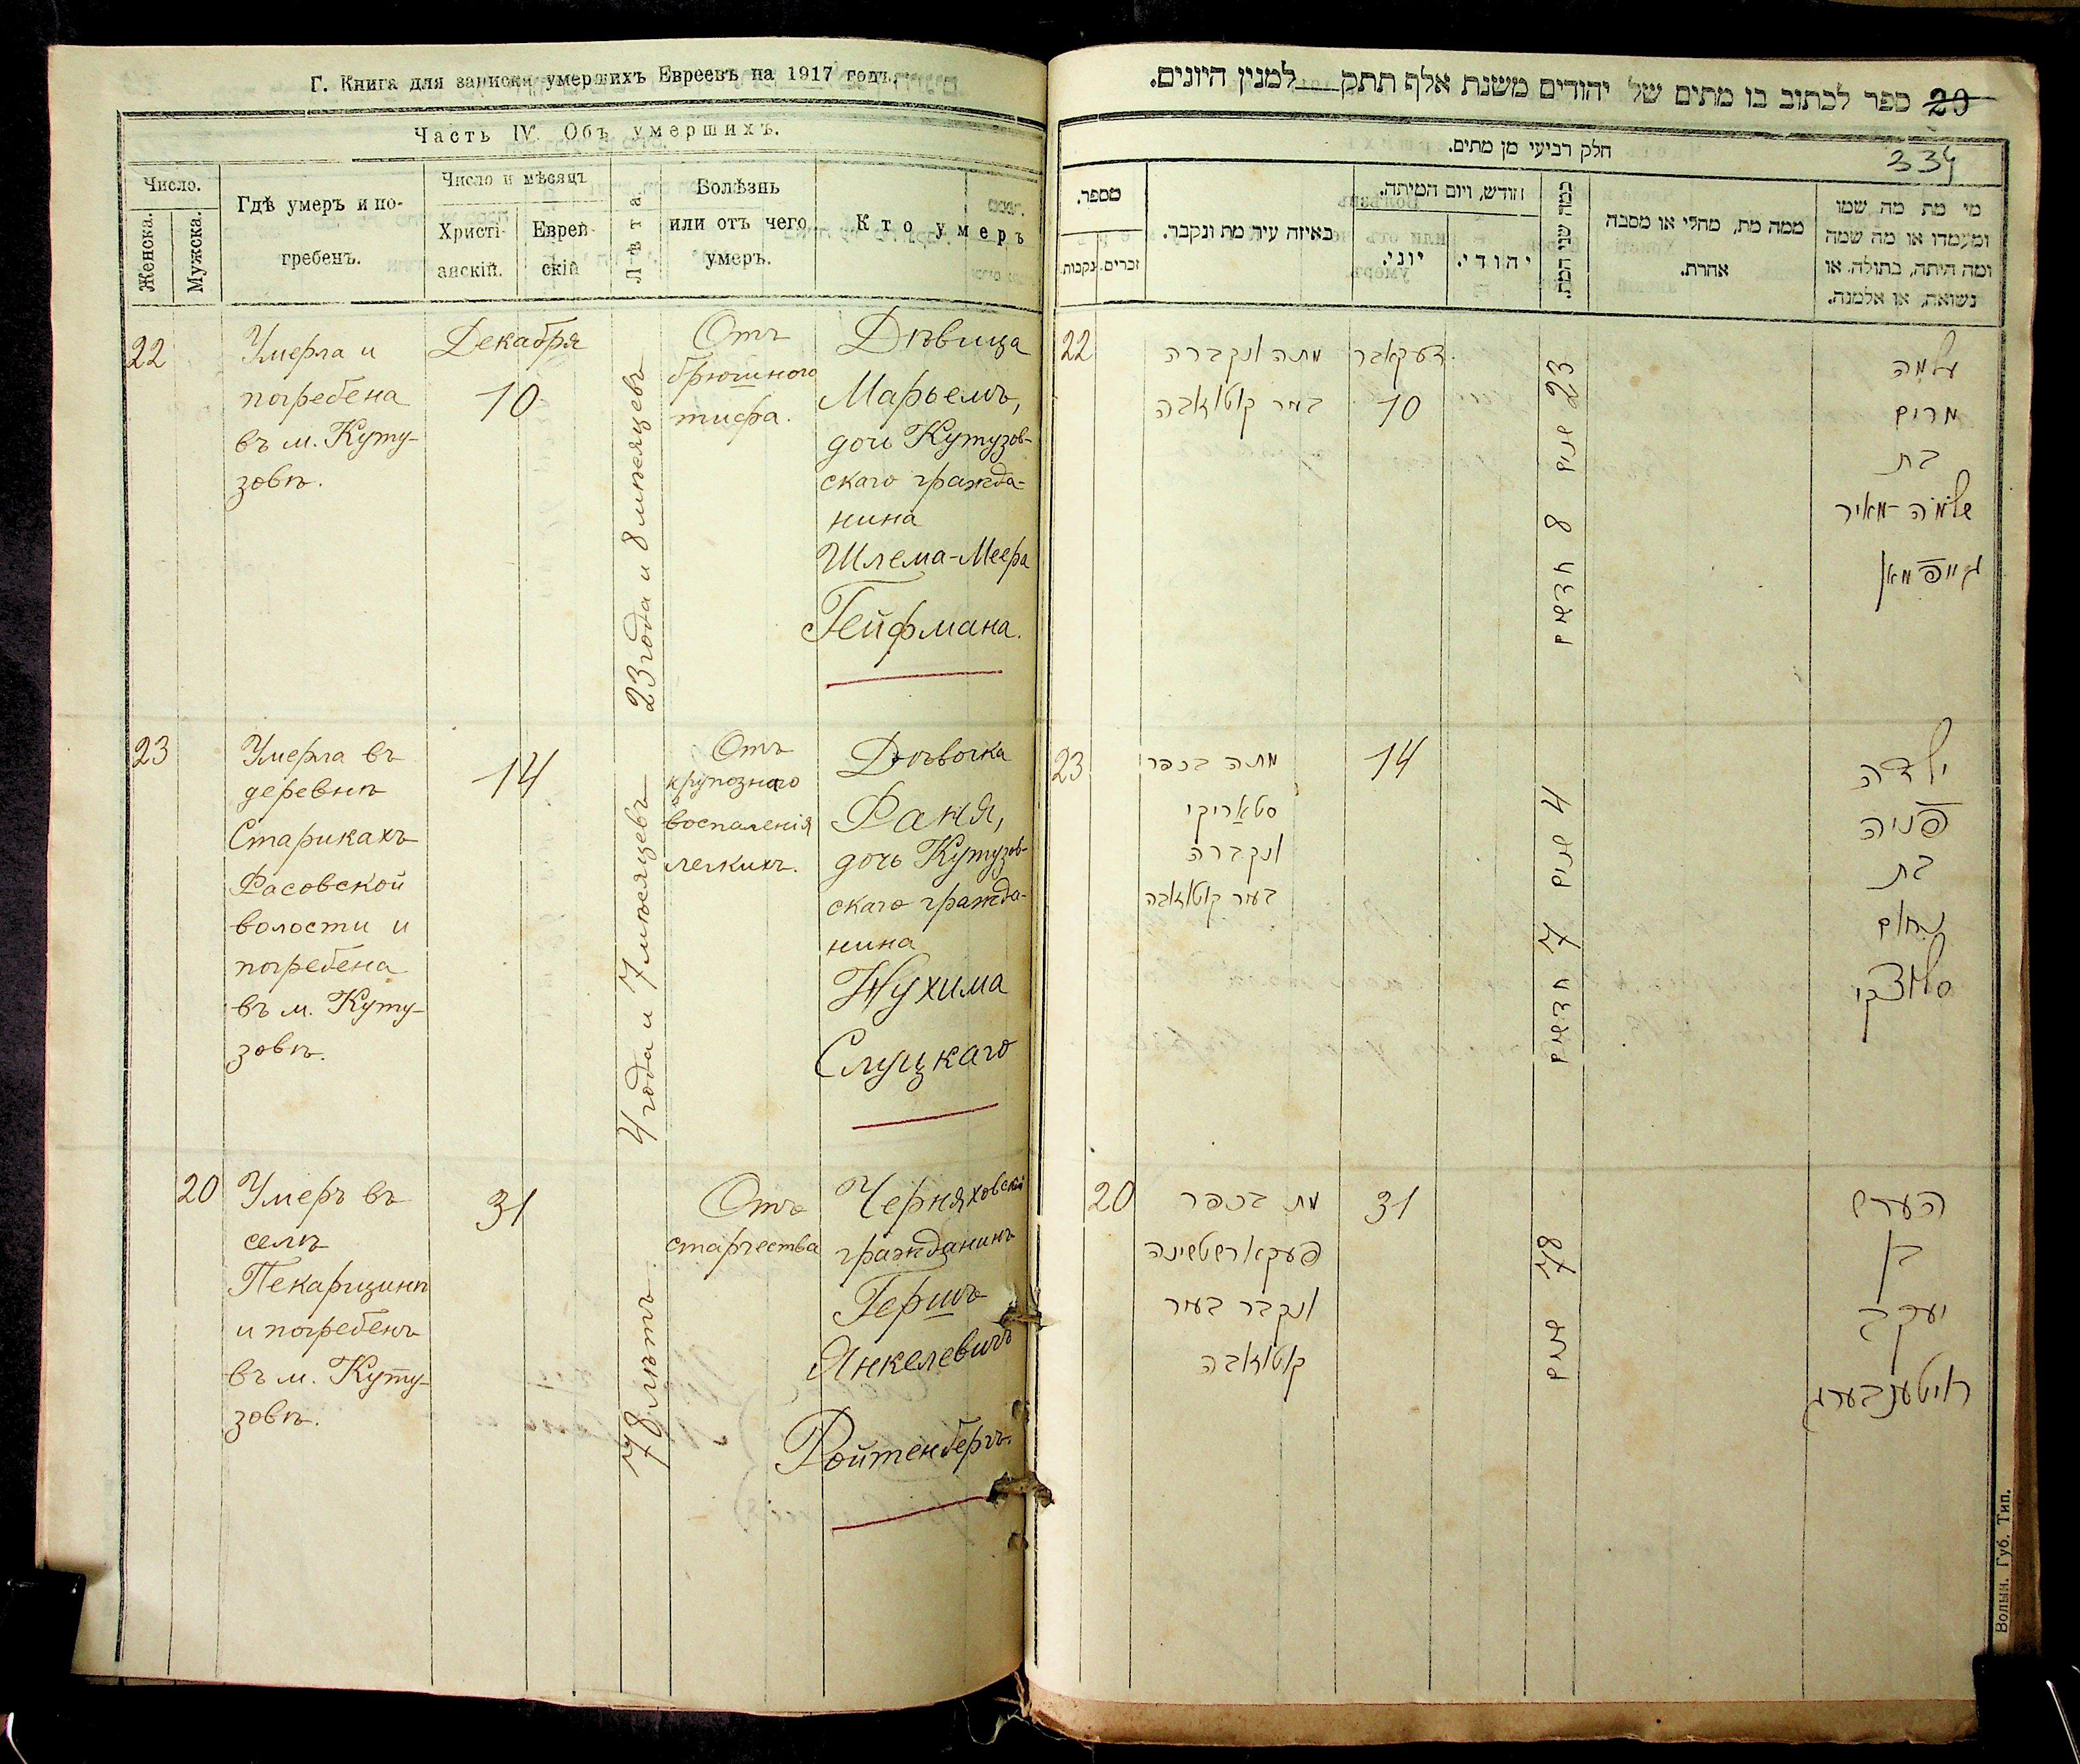 Г. Книга для записки умершихъ Евреевъ на 1917 годъ.
Часть IV. Объ умершихъ.
Число.
Женска.
Мужска.
Гдѣ умеръ и по-
гребенъ.
Число и мѣсяцъ
Христі-
анскій.
Еврей-
скій
Лѣта.
Болѣзнь
или отъ чего
умеръ.
Кто умеръ
22
Умерла и
погребена
въ м. Куту-
зовѣ.
Декабря
10
23 года и 8 мѣсяцевъ
Отъ
брюшного
тифа.
Дѣвица
Марьемъ,
дочь Кутузов-
скаго гражда-
нина
Шлема-Меера
Гейфмана.
23
Умерла въ
деревнѣ
Старикахъ
Фасовской
волости и
погребена
въ м. Куту-
зовѣ.
14
4 года и 7 мѣсяцевъ
Отъ
крупознаго
воспаленія
легкихъ.
Дѣвочка
Фаня,
дочь Кутузов-
скаго гражда-
нина
Нухима
Слуцкаго
20
Умеръ въ
селѣ
Пекарщинѣ
и погребенъ
въ м. Куту-
зовѣ.
31
78 лѣтъ.
Отъ
старчества
Черняховскій
гражданинъ
Гершъ
Янкелевичъ
Ройтенбергъ.
20 ספר לכתוב בו מתים של יהודים משנת אלף תתק למנין היונים.
334
חלק רביעי מן מתים.
מספר.
נקבות.
זכרים.
באיזה עיר מת ונקבר.
חודש, ויום המיתה.
יוני.
יהודי.
כמה שני המת.
ממה מת, מחלי או מסבה
אחרת.
מי מת מה שמו
ומעמדו או מה שמה
ומה היתה, בתולה, או
נשואה, או אלמנה.
22
מתה ונקברה
בעיר קוטוזאבה
דעקאבר
10
23 שנים 8 חדשים
עלמה
מרים
בת
שלמה-מאיר
גייפמאן
23
מתה בכפר
סטאריקי
ונקברה
בעיר קוטוזאבה
14
4 שנים 7 חדשים
ילדה
פניה
בת
נחום
סלוצקי
20
מת בכפר
פעקארשטשינה
ונקבר בעיר
קוטוזאבה
31
78 שנים
הערש
בן
יעקב
רויטענבערג
Волын. Губ. Тип.